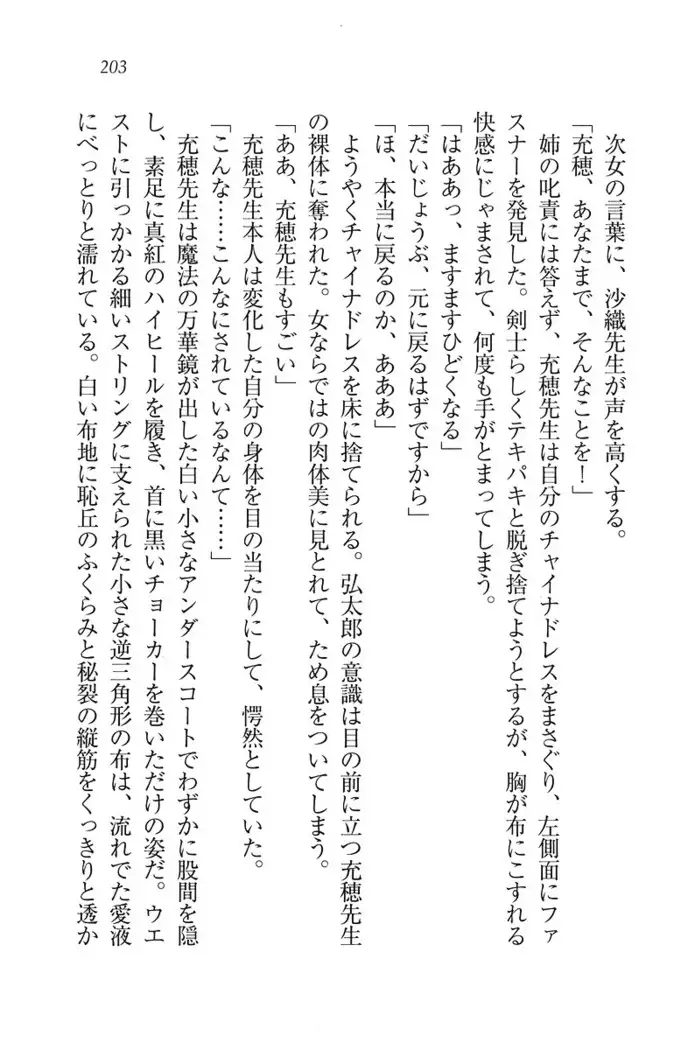 203
次女の言葉に、沙織先生が声を高くする。
「充穂、あなたまで、そんなことを！」
姉の叱責には答えず、充穂先生は自分のチャイナドレスをまさぐり、左側面にファ
スナーを発見した。剣士らしくテキパキと脱ぎ捨てようとするが、胸が布にこすれる
快感にじゃまされて、何度も手がとまってしまう。
「はああっ、ますますひどくなる」
「だいじょうぶ、元に戻るはずですから」
「ほ、本当に戻るのか、あああ」
ようやくチャイナドレスを床に捨てられる。弘太郎の意識は目の前に立つ充穂先生
の裸体に奪われた。女ならではの肉体美に見とれて、ため息をついてしまう。
「ああ、充穂先生もすごい」
充穂先生本人は変化した自分の身体を目の当たりにして、愕然としていた。
「こんな……こんなにされているなんて……」
充穂先生は魔法の万華鏡が出した白い小さなアンダースコートでわずかに股間を隠
し、素足に真紅のハイヒールを履き、首に黒いチョーカーを巻いただけの姿だ。ウエ
ストに引っかかる細いストリングに支えられた小さな逆三角形の布は、流れでた愛液
にべっとりと濡れている。白い布地に恥丘のふくらみと秘裂の縦筋をくっきりと透か